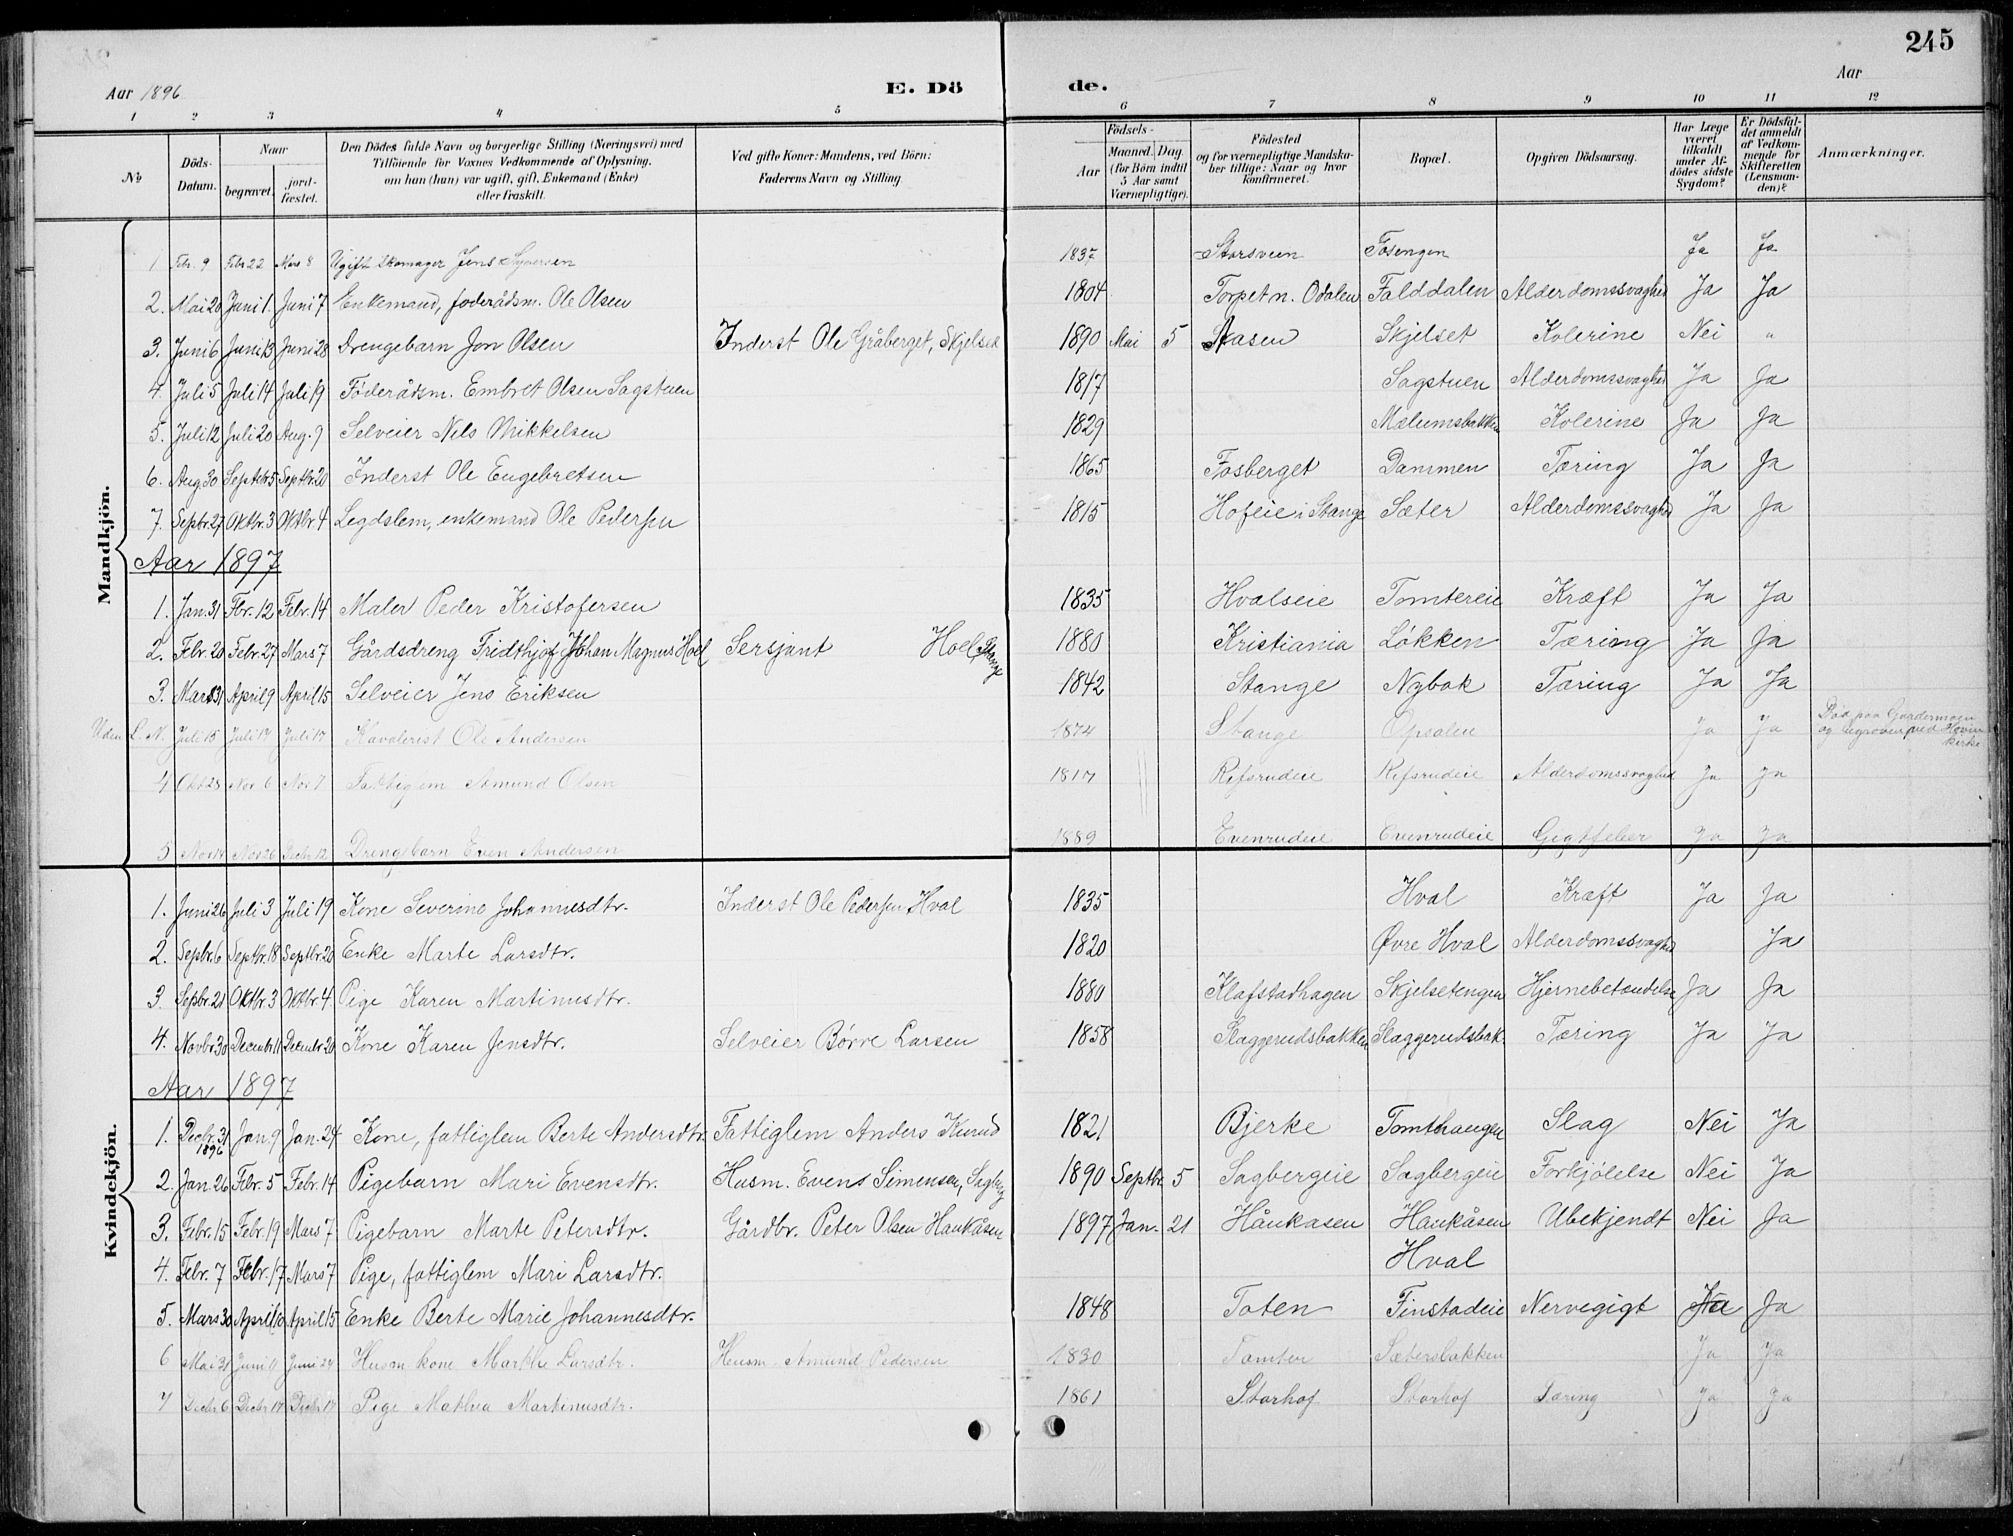 245
Aar 1896
E. Dö
de.
Aar
1 2 3 4 5 6 7 8 9 10 11 12
No
Döds-Datum.
Naar
begravet.
jord-fæstet.
Den Dödes fulde Navn og borgerlige Stilling (Næringsvei) med
Tilföiende for Voxnes Vedkommende af Oplysning,
om han (hun) var ugift, gift, Enkemand (Enke)
eller fraskilt.
Ved gifte Koner: Mandens, ved Börn:
Faderens Navn og Stilling.
Födsels-
Aar
Maaned. Dag.
(for Börn indtil
5 Aar samt
Værnepligtige).
Födested
og for værnepligtige Mandska-
ber tillige: Naar og hvor
konfirmeret.
Bopæl.
Opgiven Dödsaarsag.
Har Læge
været
tilkaldt
under Af-
dödes sidste
Sygdom?
Er Dödsfal-
det anmeldt
af Vedkom-
mende for
Skifteretten
(Lensman-
den)?
Anmærkninger.
Mandkjön.
1 Febr. 9 Febr 22 Mars 8 Ugift skomager Jens Syversen 1837 Storsveen Fosengen Ja Ja
2. Mai 20 Juni 1. Juni 7 Enkemand, föderådsm. Ole Olsen 1804 Torpet n. Odalen Falddalen Alderdomssvaghed Ja Ja
3. Juni 6 Juni 13 Juni 28 Drengebarn Jon Olsen Inderst Ole Gråberget, Skjelset 1890 Mai 5 Aasen Skjelset Kolerine Nei "
4. Juli 5 Juli 14 Juli 19 Föderådsm. Embret Olsen Sagstuen 1817 Sagstuen Alderdomssvaghed Ja Ja
5. Juli 12 Juli 20 Aug. 9 Selveier Nils Mikkelsen 1829 Mælumsbakken Kolerine Ja Ja
6. Aug 30 Septbr 5 Septbr. 20 Inderst Ole Engebretsen 1865 Fosberget Dammen Tæring Ja Ja
7. Septbr. 27 Oktbr. 3 Oktbr. 4 Legdslem, enkemand Ole Pedersen 1815 Hofeie i Stange Sæter Alderdomssvaghed Ja Ja
Aar 1897
1. Jan. 31 Fbr. 12 Febr. 14 Maler Peder Kristofersen 1835 Hvalseie Tomtereie Kræft Ja Ja
2. Febr. 20 Febr. 27 Mars 7 Gårdsdreng Fridthjof Johan Magnus Hoel Sersjant Hoel, Stange 1880 Kristiania Løkken Tæring Ja Ja
3. Mars 31 April 9 April 15 Selveier Jens Eriksen 1842 Stange Nybak Tæring Ja Ja
Uden L. N. Juli 15 Juli 17 Juli 17 Kavalerist Ole Andersen 1874 Stange Opsalen Ja Ja Död paa Gardermoen
og begraven ved Hovin
kirke
4 Okt 28 Nov 6 Nov 7 Fattiglem Amund Olsen 1817 Refsrudeie Refsrudeie Alderdomssvaghed Ja Ja
5 Nov 14 Nov 26 Decbr 12 Drengebarn Even Andersen 1889 Evenrudeie Evenrudeie Gigtfeber Ja Ja
Kvindekjön.
1. Juni 26 Juli 3 Juli 19 Kone Severine Johannesdtr. Inderst Ole Pedersen Hval 1835 Hval Kræft Ja Ja
2. Sepbr. 6 Septbr. 18 Septbr. 20 Enke Marte Larsdtr. 1820 Øvre Hval Alderdomssvaghed Ja
3. Sepbr. 21 Oktbr. 3 Oktbr. 4 Pige Karen Martinusdtr. 1880 Klafstadhagen Skjelsetengen Hjernebetændelse Ja Ja
4. Novbr. 30 Decembr 11 Decembr 20 Kone Karen Jensdtr. Selveier Børre Larsen 1858 Slaggerudsbakken Slaggerudsbak. Tæring Ja Ja
Aar 1897
1. Decbr. 31 1896 Jan. 9 Jan. 24 Kone, fattiglem Berte Andersdtr. Fattiglem Anders Kurud 1821 Bjerke Tomthaugen Slag Nei Ja
2. Jan. 26 Febr. 5 Febr. 14 Pigebarn Mari Evensdtr. Husm. Evens Simensen, Sagberg 1890 Septbr. 5 Sagbergeie Sagbergeie Forkjølelse Nei Ja
3. Febr. 15 Febr. 19 Mars 7 Pigebarn Marte Petersdtr. Gårdbr. Peter Olsen Haukåsen 1897 Jan. 21 Håukasen Haukåsen Ubekjendt Nei Ja
4. Febr. 7 Febr. 17 Mars 7 Pige, fattiglem Mari Larsdtr. Hval
5. Mars 30 April 10 April 15 Enke Berte Marie Johannesdtr. 1848 Toten Finstadeie Nervegigt Ja Ja
6 Mai 31 Juni 11 Juni 24 Husm kone Marthe Larsdtr. Husm. Amund Pedersen 1830 Tomter Sætersbakken Ja Ja
7 Decbr. 6 Decbr 17 Decbr 17 Pige Mathea Martinusdtr. 1861 Storhof Storhof Tæring Ja Ja